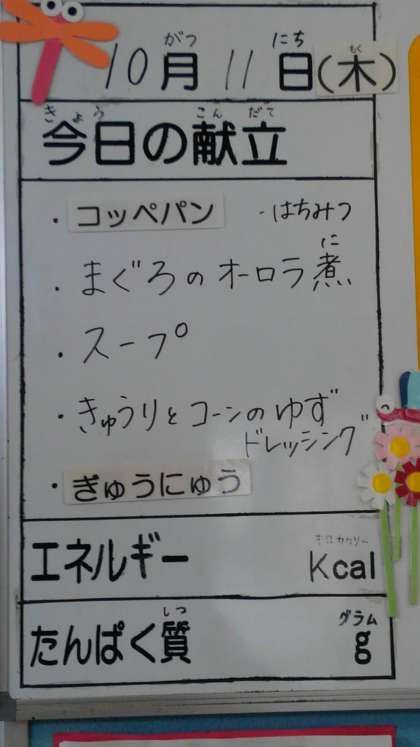 10月11日(木)
がつ にち もく
今日の献立
きょう こんだて
・コッペパン ・はちみつ
・まぐろのオーロラ煮
に
・スープ
・きゅうりとコーンのゆず
ドレッシング
・ぎゅうにゅう
エネルギー Kcal
キロカロリー
たんぱく質 g
しつ グラム